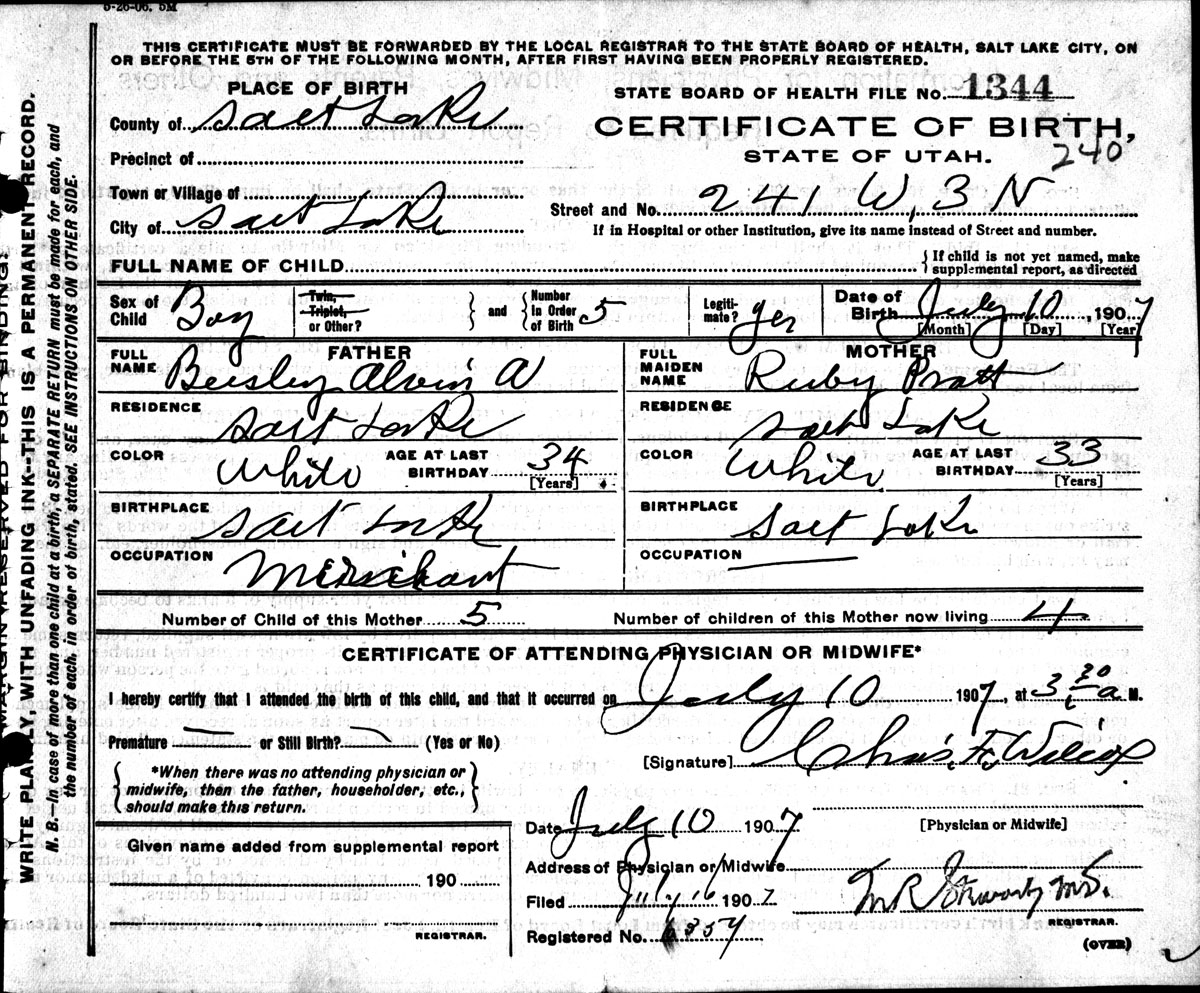 5-26-06. 5M
THIS CERTIFICATE MUST BE FORWARDED BY THE LOCAL REGISTRAR TO THE STATE BOARD OF HEALTH, SALT LAKE CITY, ON
OR BEFORE THE 5TH OF THE FOLLOWING MONTH, AFTER FIRST HAVING BEEN PROPERLY REGISTERED.
PLACE OF BIRTH
STATE BOARD OF HEALTH FILE No. 1344
County of Salt Lake
CERTIFICATE OF BIRTH,
Precinct of
STATE OF UTAH. 240
Town or Village of
City of Salt Lake
Street and No. 241 W, 3 N
If in Hospital or other Institution, give its name instead of Street and number.
FULL NAME OF CHILD { If child is not yet named, make
supplemental report, as directed
Sex of Child Boy
Twin, Triplet, or Other?
and { Number in Order of Birth 5
Legiti-mate? yes
Date of Birth July 10, 1907
[Month] [Day] [Year]
FATHER
FULL NAME Beesley Alvin A
MOTHER
FULL MAIDEN NAME Ruby Pratt
RESIDENCE Salt Lake
RESIDENCE Salt Lake
COLOR White AGE AT LAST BIRTHDAY 34 [Years]
COLOR White AGE AT LAST BIRTHDAY 33 [Years]
BIRTHPLACE Salt Lake
BIRTHPLACE Salt Lake
OCCUPATION Merchant
OCCUPATION
Number of Child of this Mother 5 Number of children of this Mother now living 4
CERTIFICATE OF ATTENDING PHYSICIAN OR MIDWIFE*
I hereby certify that I attended the birth of this child, and that it occurred on July 10 1907, at 3 20 a M.
Premature or Still Birth? (Yes or No)
[Signature] Chas. F. Wilcox
{ *When there was no attending physician or
midwife, then the father, householder, etc.,
should make this return. }
Date July 10 1907
[Physician or Midwife]
Given name added from supplemental report
Address of Physician or Midwife
190
Filed July 16 1907
M R Stewart M.D.
REGISTRAR.
REGISTRAR.
Registered No.
(OVER)
MARGIN RESERVED FOR BINDING.
WRITE PLAINLY, WITH UNFADING INK--THIS IS A PERMANENT RECORD.
N. B.—In case of more than one child at a birth, a SEPARATE RETURN must be made for each, and
the number of each, in order of birth, stated. SEE INSTRUCTIONS ON OTHER SIDE.